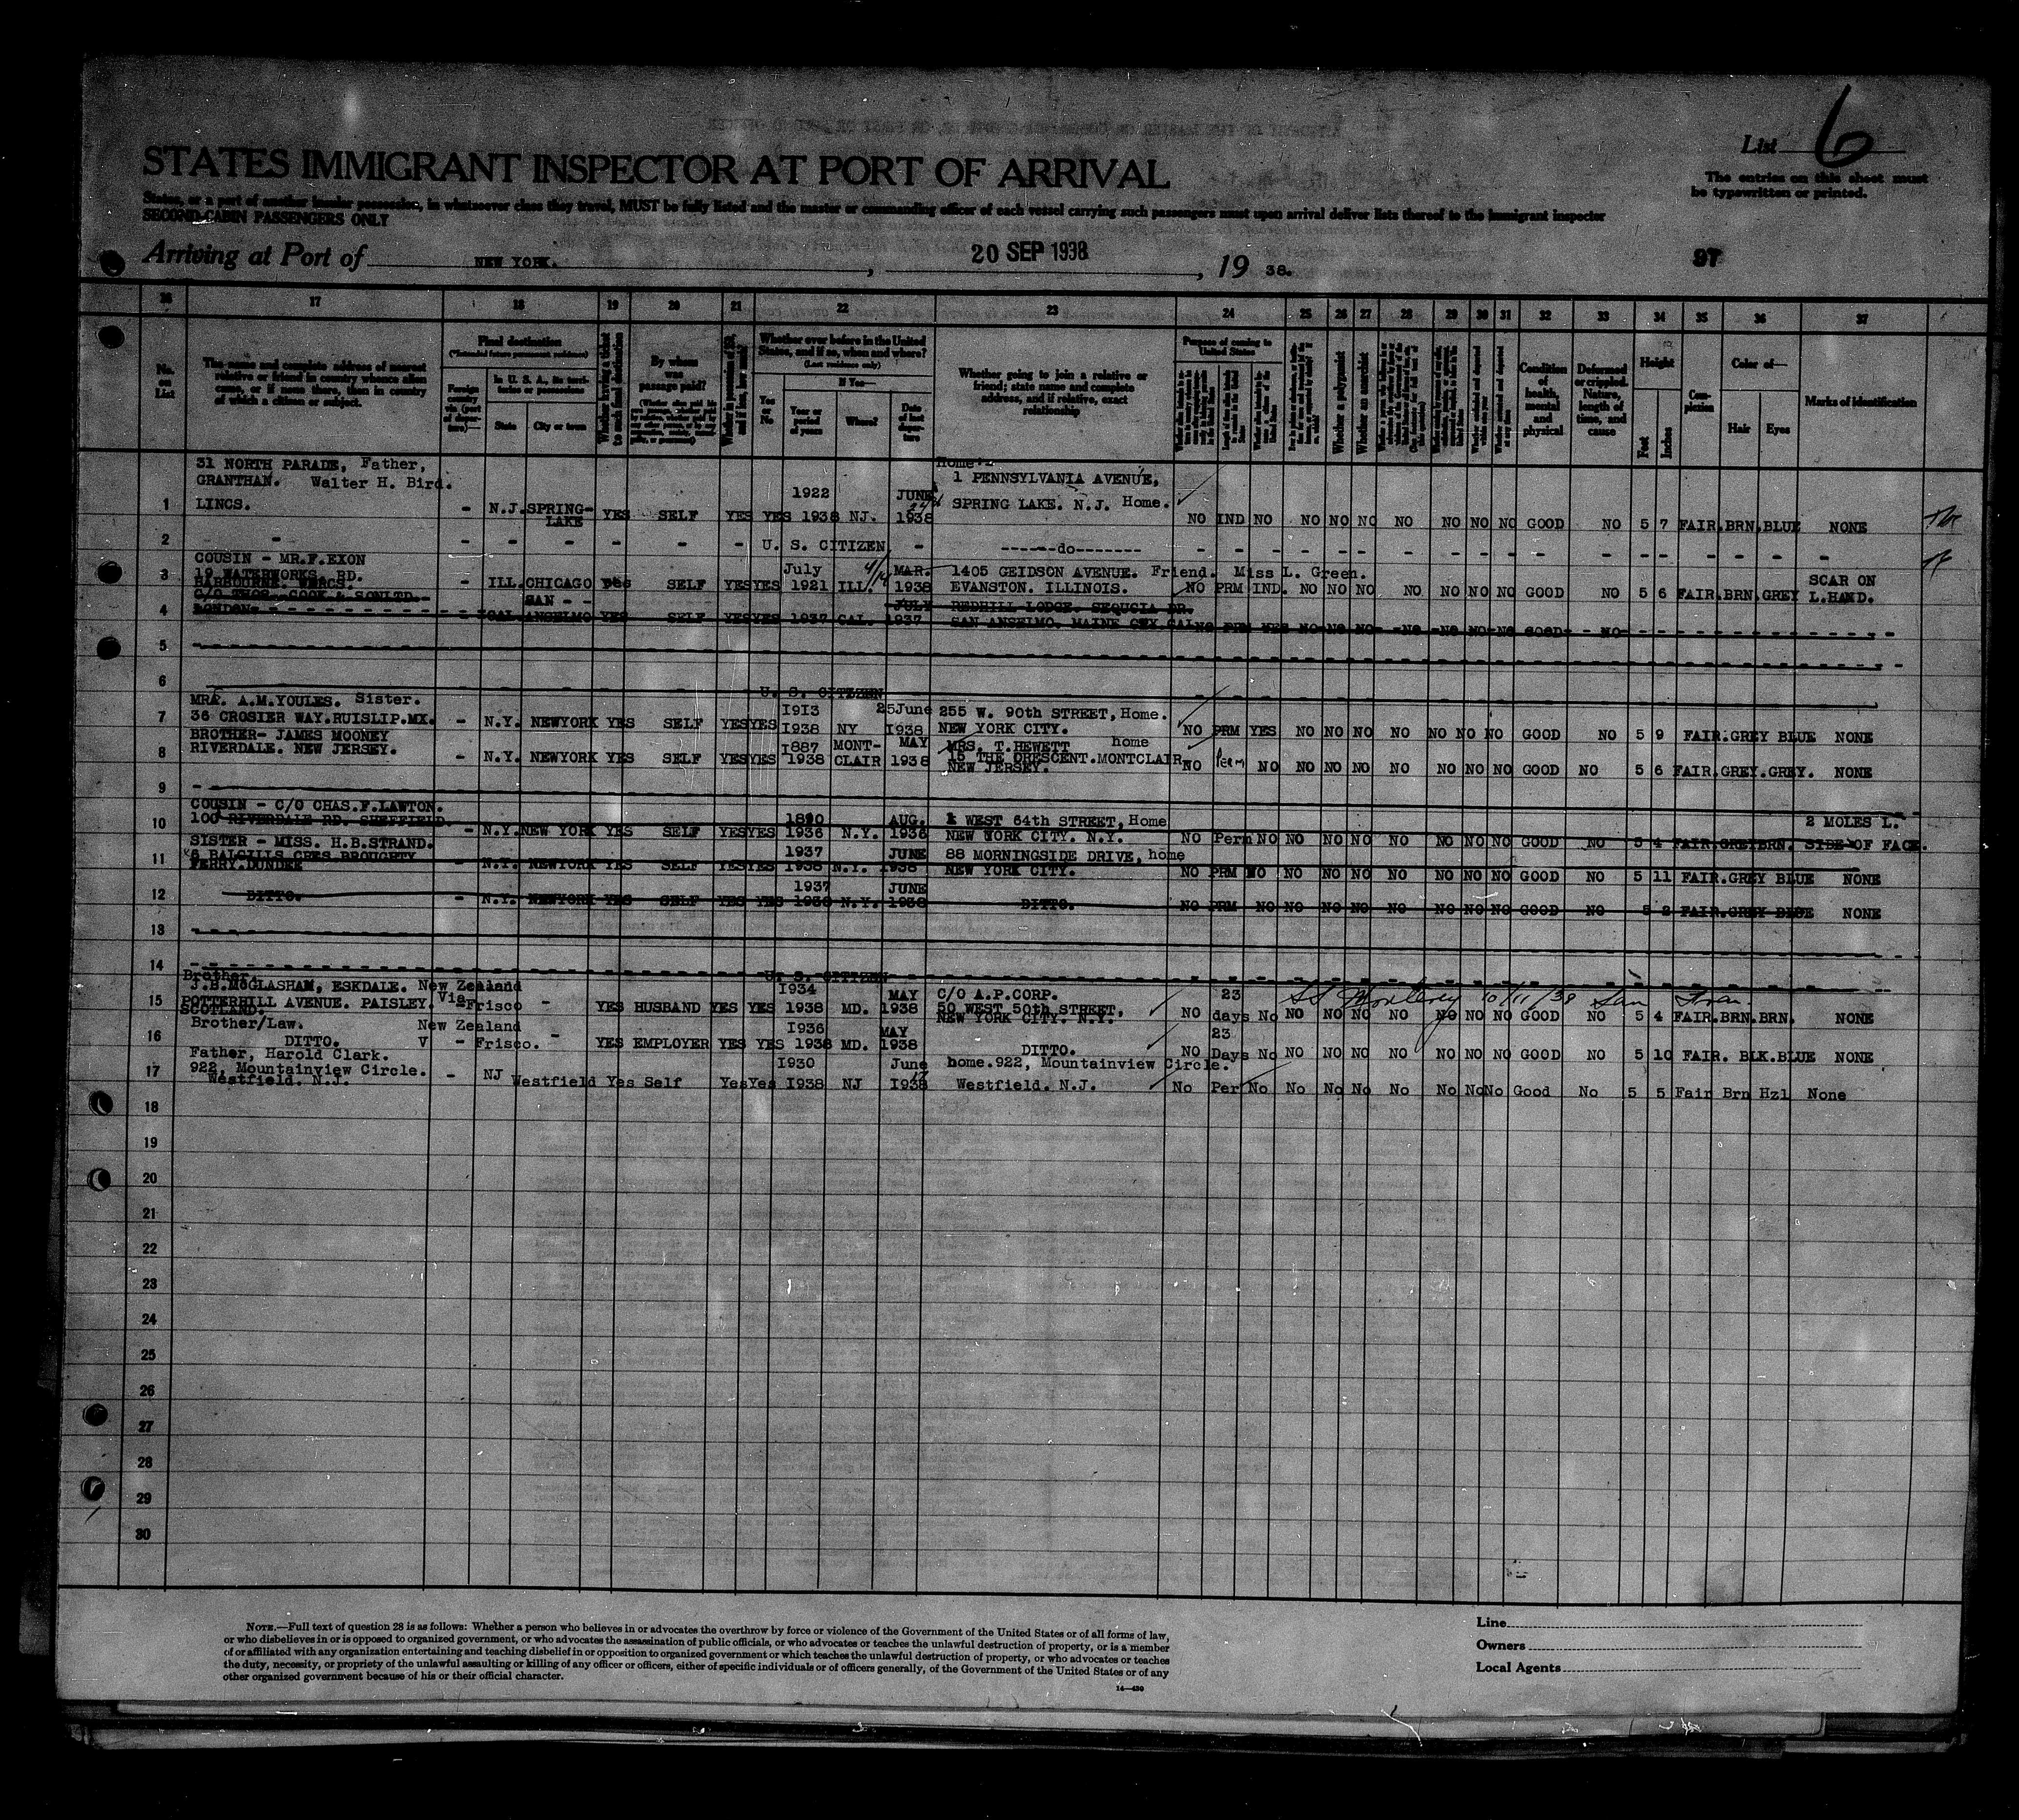 List 6
STATES IMMIGRANT INSPECTOR AT PORT OF ARRIVAL
The entries on this sheet must
be typewritten or printed.
States, or a port of another insular possession, in whatsoever class they travel, MUST be fully listed and the master or commanding officer of each vessel carrying such passengers must upon arrival deliver lists thereof to the immigrant inspector
SECOND-CABIN PASSENGERS ONLY
Arriving at Port of NEW YORK. , 20 SEP 1938 , 19 38.
97
16 17 18 19 20 21 22 23 24 25 26 27 28 29 30 31 32 33 34 35 36 37
No. on List
The name and complete address of nearest relative or friend in country whence alien came, or if none there, then in country of which a citizen or subject.
Final destination
(*Intended future permanent residence)
Foreign country via (port of departure)
In U. S. A., its territories or possessions
State City or town
Whether having a ticket to such final destination
By whom was passage paid?
Whether ever before in the United States, and if so, when and where?
(Last residence only)
Yes or No
If Yes—
Year or period of years
Where?
Date of last departure
Whether going to join a relative or friend; state name and complete address, and if relative, exact relationship
Purpose of coming to United States
Whether a polygamist
Whether an anarchist
Condition of health, mental and physical
Deformed or crippled. Nature, length of time, and cause
Height
Feet Inches
Complexion
Color of—
Hair Eyes
Marks of identification
31 NORTH PARADE, Father,
GRANTHAN. Walter H. Bird.
1 LINCS. - N.J. SPRING-LAKE YES SELF YES YES 1922 1938 NJ. JUNE 1938 1 PENNSYLVANIA AVENUE, SPRING LAKE. N.J. Home. NO IND NO NO NO NO NO NO NO NO GOOD NO 5 7 FAIR. BRN. BLUE NONE
2 - - - - - - - U. S. CITIZEN - ------do------- - - - - - - - - - - - - - - - - - -
COUSIN - MR.F.EXON
3 19 WATERWORKS. RD.
HARBOURNE. WORCS. - ILL. CHICAGO YES SELF YES YES July 1921 ILL. MAR. 1938 1405 GEIDSON AVENUE. Friend. Miss L. Green. EVANSTON. ILLINOIS. NO PRM IND. NO NO NO NO NO NO NO GOOD NO 5 6 FAIR. BRN. GREY SCAR ON L.HAND.
C/O THOS. COOK & SON LTD.
4 LONDON - CAL. SAN ANSELMO YES SELF YES YES 1937 CAL. JULY 1937 REDHILL LODGE. SEQUOIA DR. SAN ANSELMO. MAINE CAL NO PRM YES NO NO NO NO NO NO NO GOOD NO
5
6 U. S. CITIZEN
MRS. A.M.YOULES. Sister.
7 36 CROSIER WAY.RUISLIP.MX. - N.Y. NEWYORK YES SELF YES YES 1913 1938 NY 25June 1938 255 W. 90th STREET, Home. NEW YORK CITY. NO PRM YES NO NO NO NO NO NO NO GOOD NO 5 9 FAIR. GREY BLUE NONE
BROTHER- JAMES MOONEY
8 RIVERDALE. NEW JERSEY. - N.Y. NEWYORK YES SELF YES YES 1887 1938 MONT-CLAIR MAY 1938 MRS. T.HEWETT home 15 THE CRESCENT. MONTCLAIR NEW JERSEY. NO Perm NO NO NO NO NO NO NO NO GOOD NO 5 6 FAIR. GREY. GREY. NONE
9
COUSIN - C/O CHAS.F.LAWTON.
10 100 RIVERDALE RD. SHEFFIELD. - N.Y. NEW YORK YES SELF YES YES 1936 N.Y. AUG. 1936 WEST 64th STREET, Home NEW YORK CITY. N.Y. NO Perm NO NO NO NO NO NO NO NO GOOD NO 5 4 FAIR. GREY BRN. 2 MOLES L. SIDE OF FACE.
SISTER - MISS. H.B.STRAND.
11 BALGILLS CRES BROUGHTY FERRY. DUNDEE - N.Y. NEWYORK YES SELF YES YES 1937 1938 N.Y. JUNE 1938 88 MORNINGSIDE DRIVE, home NEW YORK CITY. NO PRM NO NO NO NO NO NO NO NO GOOD NO 5 11 FAIR. GREY BLUE NONE
12 DITTO. - N.Y. NEWYORK YES SELF YES YES 1937 1938 N.Y. JUNE 1938 DITTO. NO PRM NO NO NO NO NO NO NO NO GOOD NO 5 2 FAIR. GREY BLUE NONE
13
14 U. S. CITIZEN
Brother.
J.B.McGLASHAN, ESKDALE. New Zealand
15 POTTERHILL AVENUE. PAISLEY. Via Frisco - YES HUSBAND YES YES 1934 1938 MD. MAY 1938 C/O A.P.CORP. 50 WEST 50th STREET, NEW YORK CITY. N.Y. NO 23 days No NO NO NO NO NO NO NO GOOD NO 5 4 FAIR. BRN. BRN. NONE
SCOTLAND.
SS Monterey 10/11/38 San Fran.
Brother/Law. New Zealand
16 DITTO. V - Frisco. - YES EMPLOYER YES YES 1936 1938 MD. MAY 1938 DITTO. NO 23 Days No NO NO NO NO NO NO NO GOOD NO 5 10 FAIR. BLK. BLUE NONE
Father, Harold Clark.
17 922, Mountainview Circle. Westfield. N.J. - NJ Westfield Yes Self Yes Yes 1930 1938 NJ June 1938 home. 922, Mountainview Circle. Westfield. N.J. No Per No No No No No No No No Good No 5 5 Fair Brn Hzl None
18
19
20
21
22
23
24
25
26
27
28
29
30
NOTE.—Full text of question 28 is as follows: Whether a person who believes in or advocates the overthrow by force or violence of the Government of the United States or of all forms of law,
or who disbelieves in or is opposed to organized government, or who advocates the assassination of public officials, or who advocates or teaches the unlawful destruction of property, or is a member
of or affiliated with any organization entertaining and teaching disbelief in or opposition to organized government or which teaches the unlawful destruction of property, or who advocates or teaches
the duty, necessity, or propriety of the unlawful assaulting or killing of any officer or officers, either of specific individuals or of officers generally, of the Government of the United States or of any
other organized government because of his or their official character.
14—430
Line
Owners
Local Agents